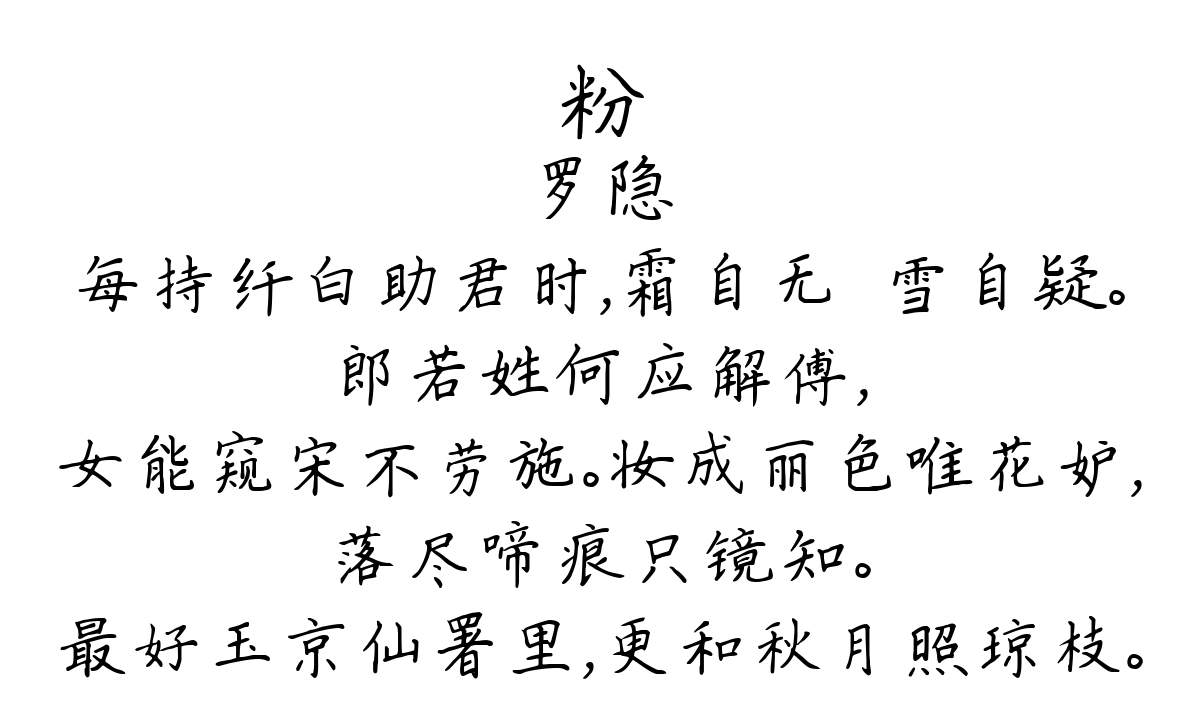 粉
罗隐
每持纤白助君时,霜自无 雪自疑。
郎若姓何应解傅,
女能窥宋不劳施。妆成丽色唯花妒,
落尽啼痕只镜知。
最好玉京仙署里,更和秋月照琼枝。